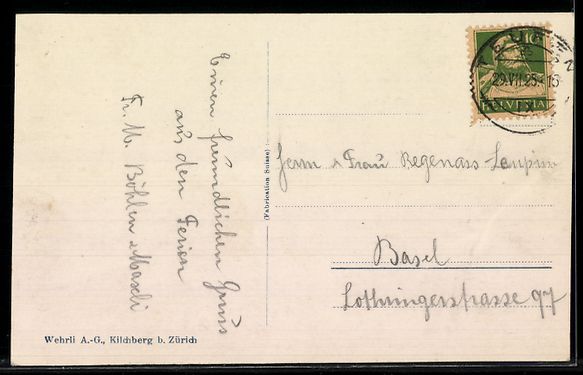 Einen freundlichen Gruss
aus den Ferien
Fr. M. Böhlen
(Fabrication Suisse)
TEUFEN
29.VII.25-16
10
HELVETIA
Herrn & Frau Regenass-
Basel
Lothringerstrasse 97
Wehrli A.-G., Kilchberg b. Zürich